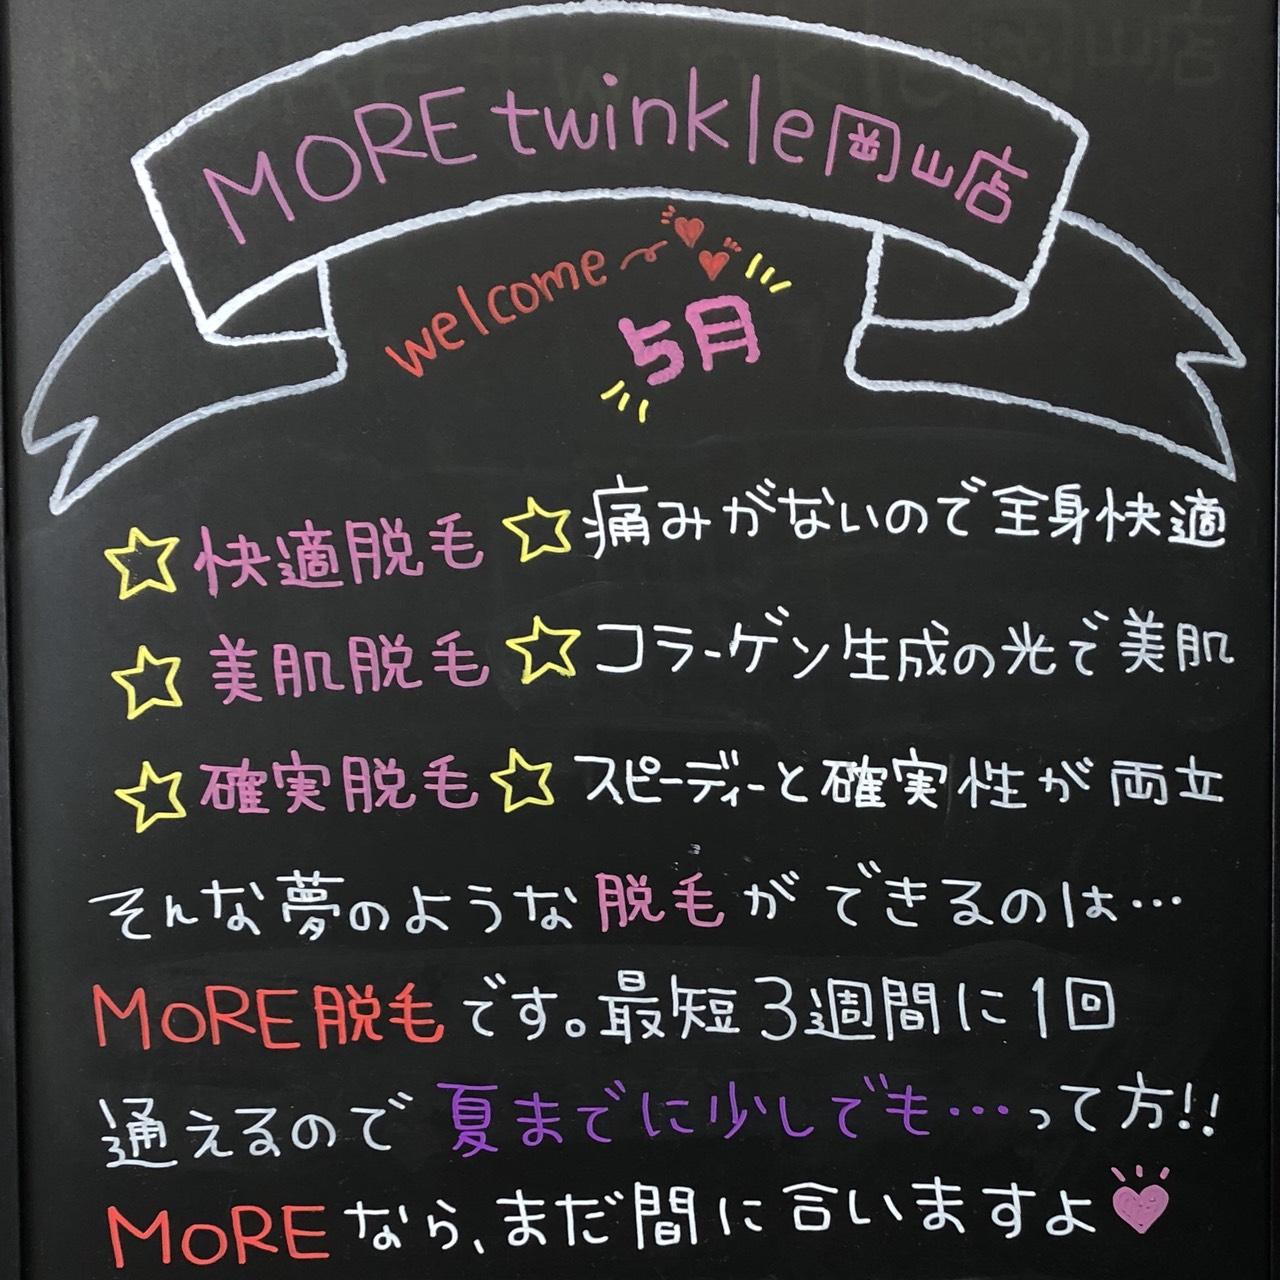 MORE twinkle岡山店
welcome~
5月
☆快適脱毛☆痛みがないので全身快適
☆美肌脱毛☆コラーゲン生成の光で美肌
☆確実脱毛☆スピーディーと確実性が両立
そんな夢のような脱毛ができるのは…
MoRE脱毛です。最短3週間に1回
通えるので夏までに少しでも…って方!!
MoREなら、まだ間に合いますよ